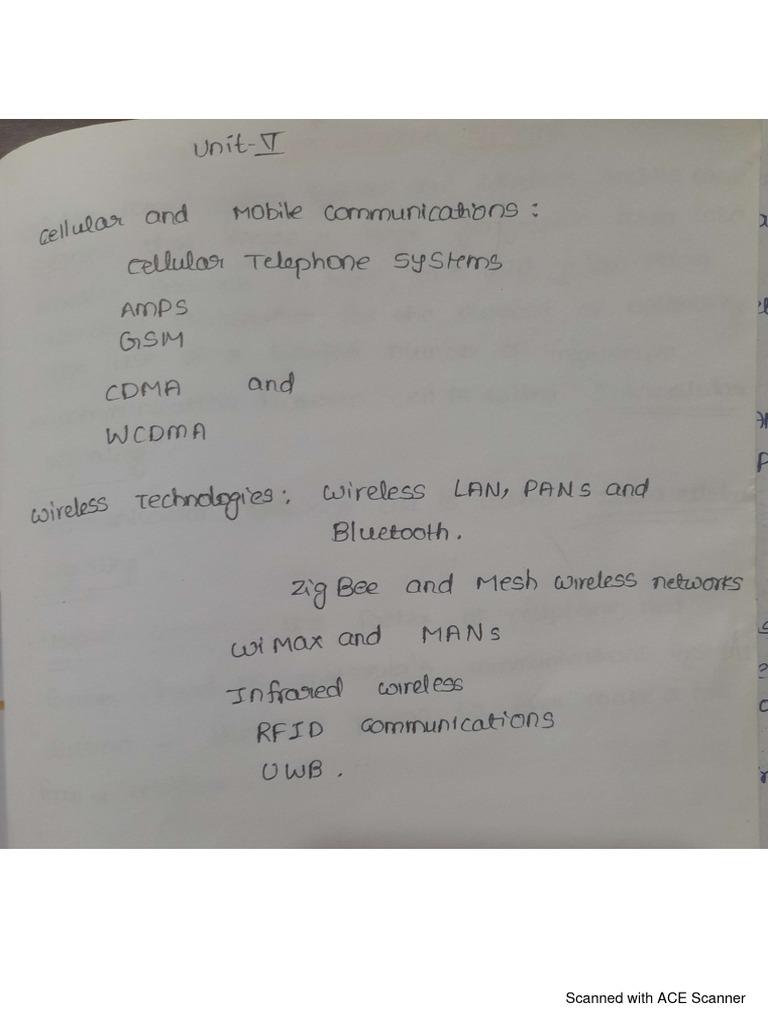 Unit-V
Cellular and Mobile Communications:
Cellular Telephone Systems
AMPS
GSM
CDMA and
WCDMA
Wireless Technologies: Wireless LAN, PANs and
Bluetooth.
ZigBee and Mesh wireless networks
WiMax and MANs
Infrared wireless
RFID communications
UWB.
Scanned with ACE Scanner